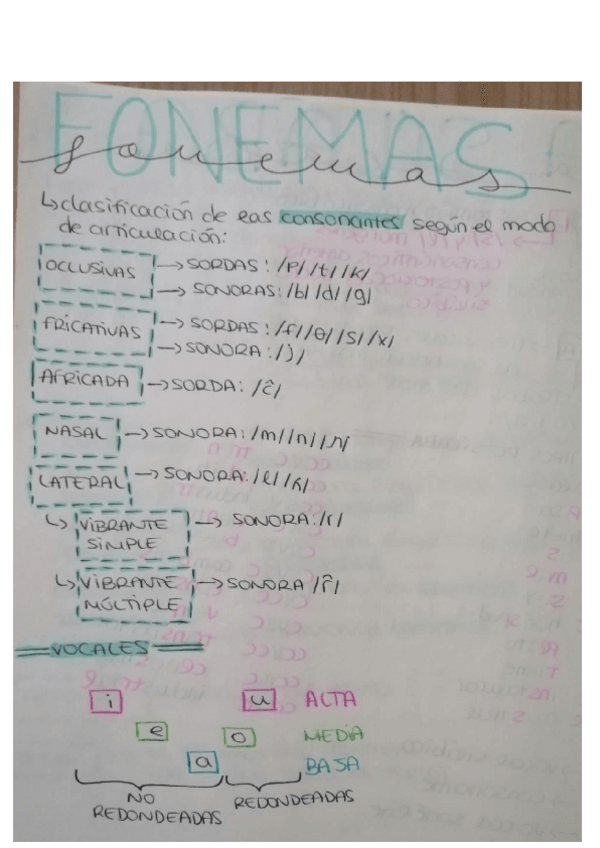 FONEMAS
fonemas
↳clasificación de las consonantes según el modo
de articulación:
OCLUSIVAS → SORDAS: /p/ /t/ /k/
→ SONORAS: /b/ /d/ /g/
FRICATIVAS → SORDAS: /f/ /θ/ /s/ /x/
→ SONORA: /ʝ/
AFRICADA → SORDA: /ĉ/
NASAL → SONORA: /m/ /n/ /ɲ/
LATERAL → SONORA: /l/ /ʎ/
↳ VIBRANTE SIMPLE → SONORA: /r/
↳ VIBRANTE MÚLTIPLE → SONORA /r̂/
VOCALES
i u ALTA
e o MEDIA
a BAJA
NO REDONDEADAS REDONDEADAS